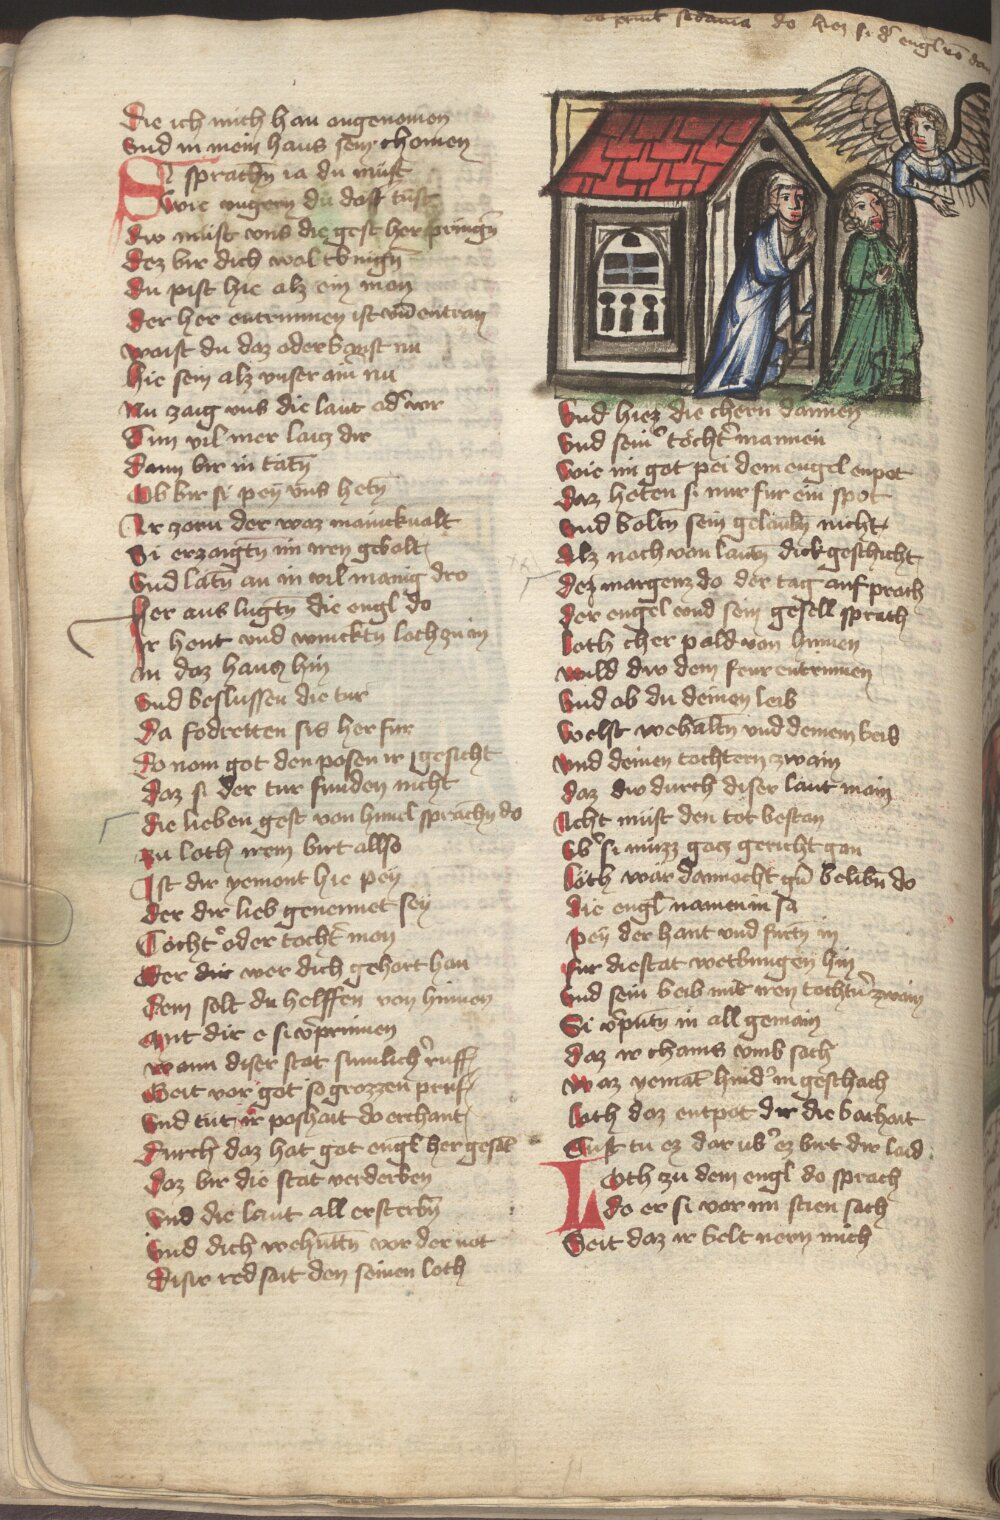 do print sodoma do hiez si d' engl vō dan
die ich mich han angenomen
Vnd in mein haus sein chomen
Si sprachn̄ ia du müst
Swie ungern du dast tüst
dw müst vns die gest her pringn̄
dez bir dich wol tbingn̄
du pist hie alz ein man
der her entrunnen ist vn̄ entran
waist du daz oder banst nu
hie sein alz vnser ain nu
Nu zaig vns die laut od' wir
Tun vil mer laitz dir
dann bir in tatn̄
Ob bir si peӱ vns hetn̄
Ir zorn der waz mainckualt
Si erzaigtn̄ im iren gebalt
Vnd latn̄ an in vil manig dro
her aus lugtn̄ die engl do
Ir hent vnd wincktn̄ loth zu in
in daz haus hin
Vnd beslussen die tur
da fodretten sis her fur
do nom got den posen ir gesicht
daz si der tur funden nicht
die lieben gest von himel sprachn̄ do
zu loth irem birt allso
Ist dir yemont hie pey
der dir lieb genennet sey
Tocht' oder tocht' man
Oder dir wer dich gehort han
Dem solt du helffen von hinnen
mit dir e si v'prinnen
wann diser stat sunlich' ruff
Seit vor got so grozzen pruf
Vnd tut ir poshait do erchant
durch daz hat got engl her gesāt
daz bir die stat verderben
Vnd die laut all ersterbn̄
Vnd dich wehuttn̄ vor der not
disw red sait den seinen loth
Vnd hiez die chern dannen
Vnd sein' töcht' mannen
Wie im got pei dem engel enpot
daz heten si nur fur ein spot
Vnd boltn sein gelaubn̄ nicht
Alz noch von lautn̄ dick geschicht
dez margenz do der tag auf prach
der engel vnd sein gesell sprach
loth cher pald von hinnen
wild dw dem feur entrinnen
Vnd ob du deinen leib
Welst wehaltn̄ vnd deinem beib
Vnd deinen tochtern zwain
daz dw durch diser laut main
Icht müst den tot bestan
Ub' si muzz gotz gericht gan
Loth war dannocht gn̄ belibn̄ do
die engl namen in sa
pey der hant vnd furtn̄ in
fur die stat wetbungen hin
Vnd sein beib mit iren tochtn̄ zwain
Si v'putn̄ in all gemain
daz ir chains vmb sach
waz yemāt hind' in geschach
loth daz entpot dir die gothait
Tust tu ez dar ub' ez birt dir laid
Loth zu dem engl do sprach
do er si vor im stien sach
Seit daz ir belt nern mich